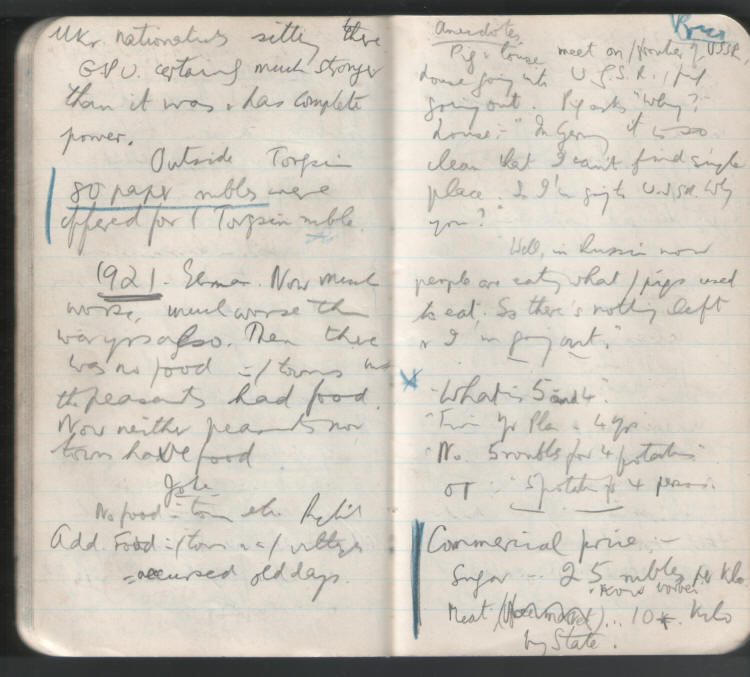 Ukr. nationalists sitting there
G.P.U. certainly much stronger
than it was & has complete
power.
Outside Torgsin
80 paper rubles were
offered for 1 Torgsin ruble.
1921. German. Now much
worse, much worse than
ago. Then there
was no food in / towns but
the peasants had food.
Now neither peasants nor
town have food
Joke
No food in town
Add. Food in / town & in / villages
= accursed old days.
Prices
Anecdotes
Pig & louse meet on / frontier of USSR,
louse going into U.S.S.R., / pig
going out. Pig asks "Why?"
Louse:- "In Germany it is so
clean that I can't find single
place. So I'm going to U.S.S.R. Why
you?"
Well, in Russia now
people are eating what / pigs used
to eat. So there's nothing left
& I'm going out."
"What is 5 and 4"
"Five Yr Plan in 4 yrs
"No. 5 roubles for 4 potatoes"
or 5 potatoes for 4 persons.
Commercial price:-
Sugar -- 25 rubles per Kilo
Meat ... 10 r. Kilo
by State.